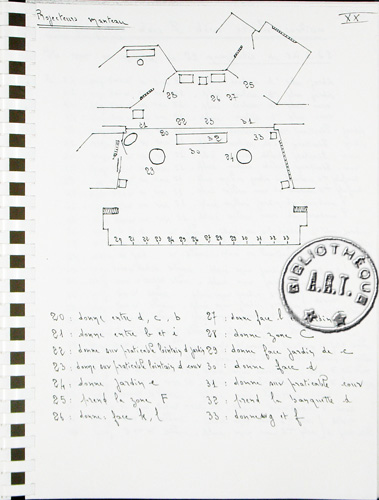 Projecteurs manteau
XX
28
26 27
25
21 22 23 31
20 32 33
30
29 24
BIBLIOTHÈQUE
A.R.T.
20 : donne entre d, c, b
21 : donne entre b et i
22 : donne sur praticable lointain d jardin
23 : donne sur praticable lointain d cour
24 : donne jardin e
25 : prend la zone F
26 : donne face k, l
27 : donne face l
28 : donne zone C
29 : donne face jardin de c
30 : donne face d
31 : donne sur praticable cour
32 : prend la banquette d
33 : donne g et f